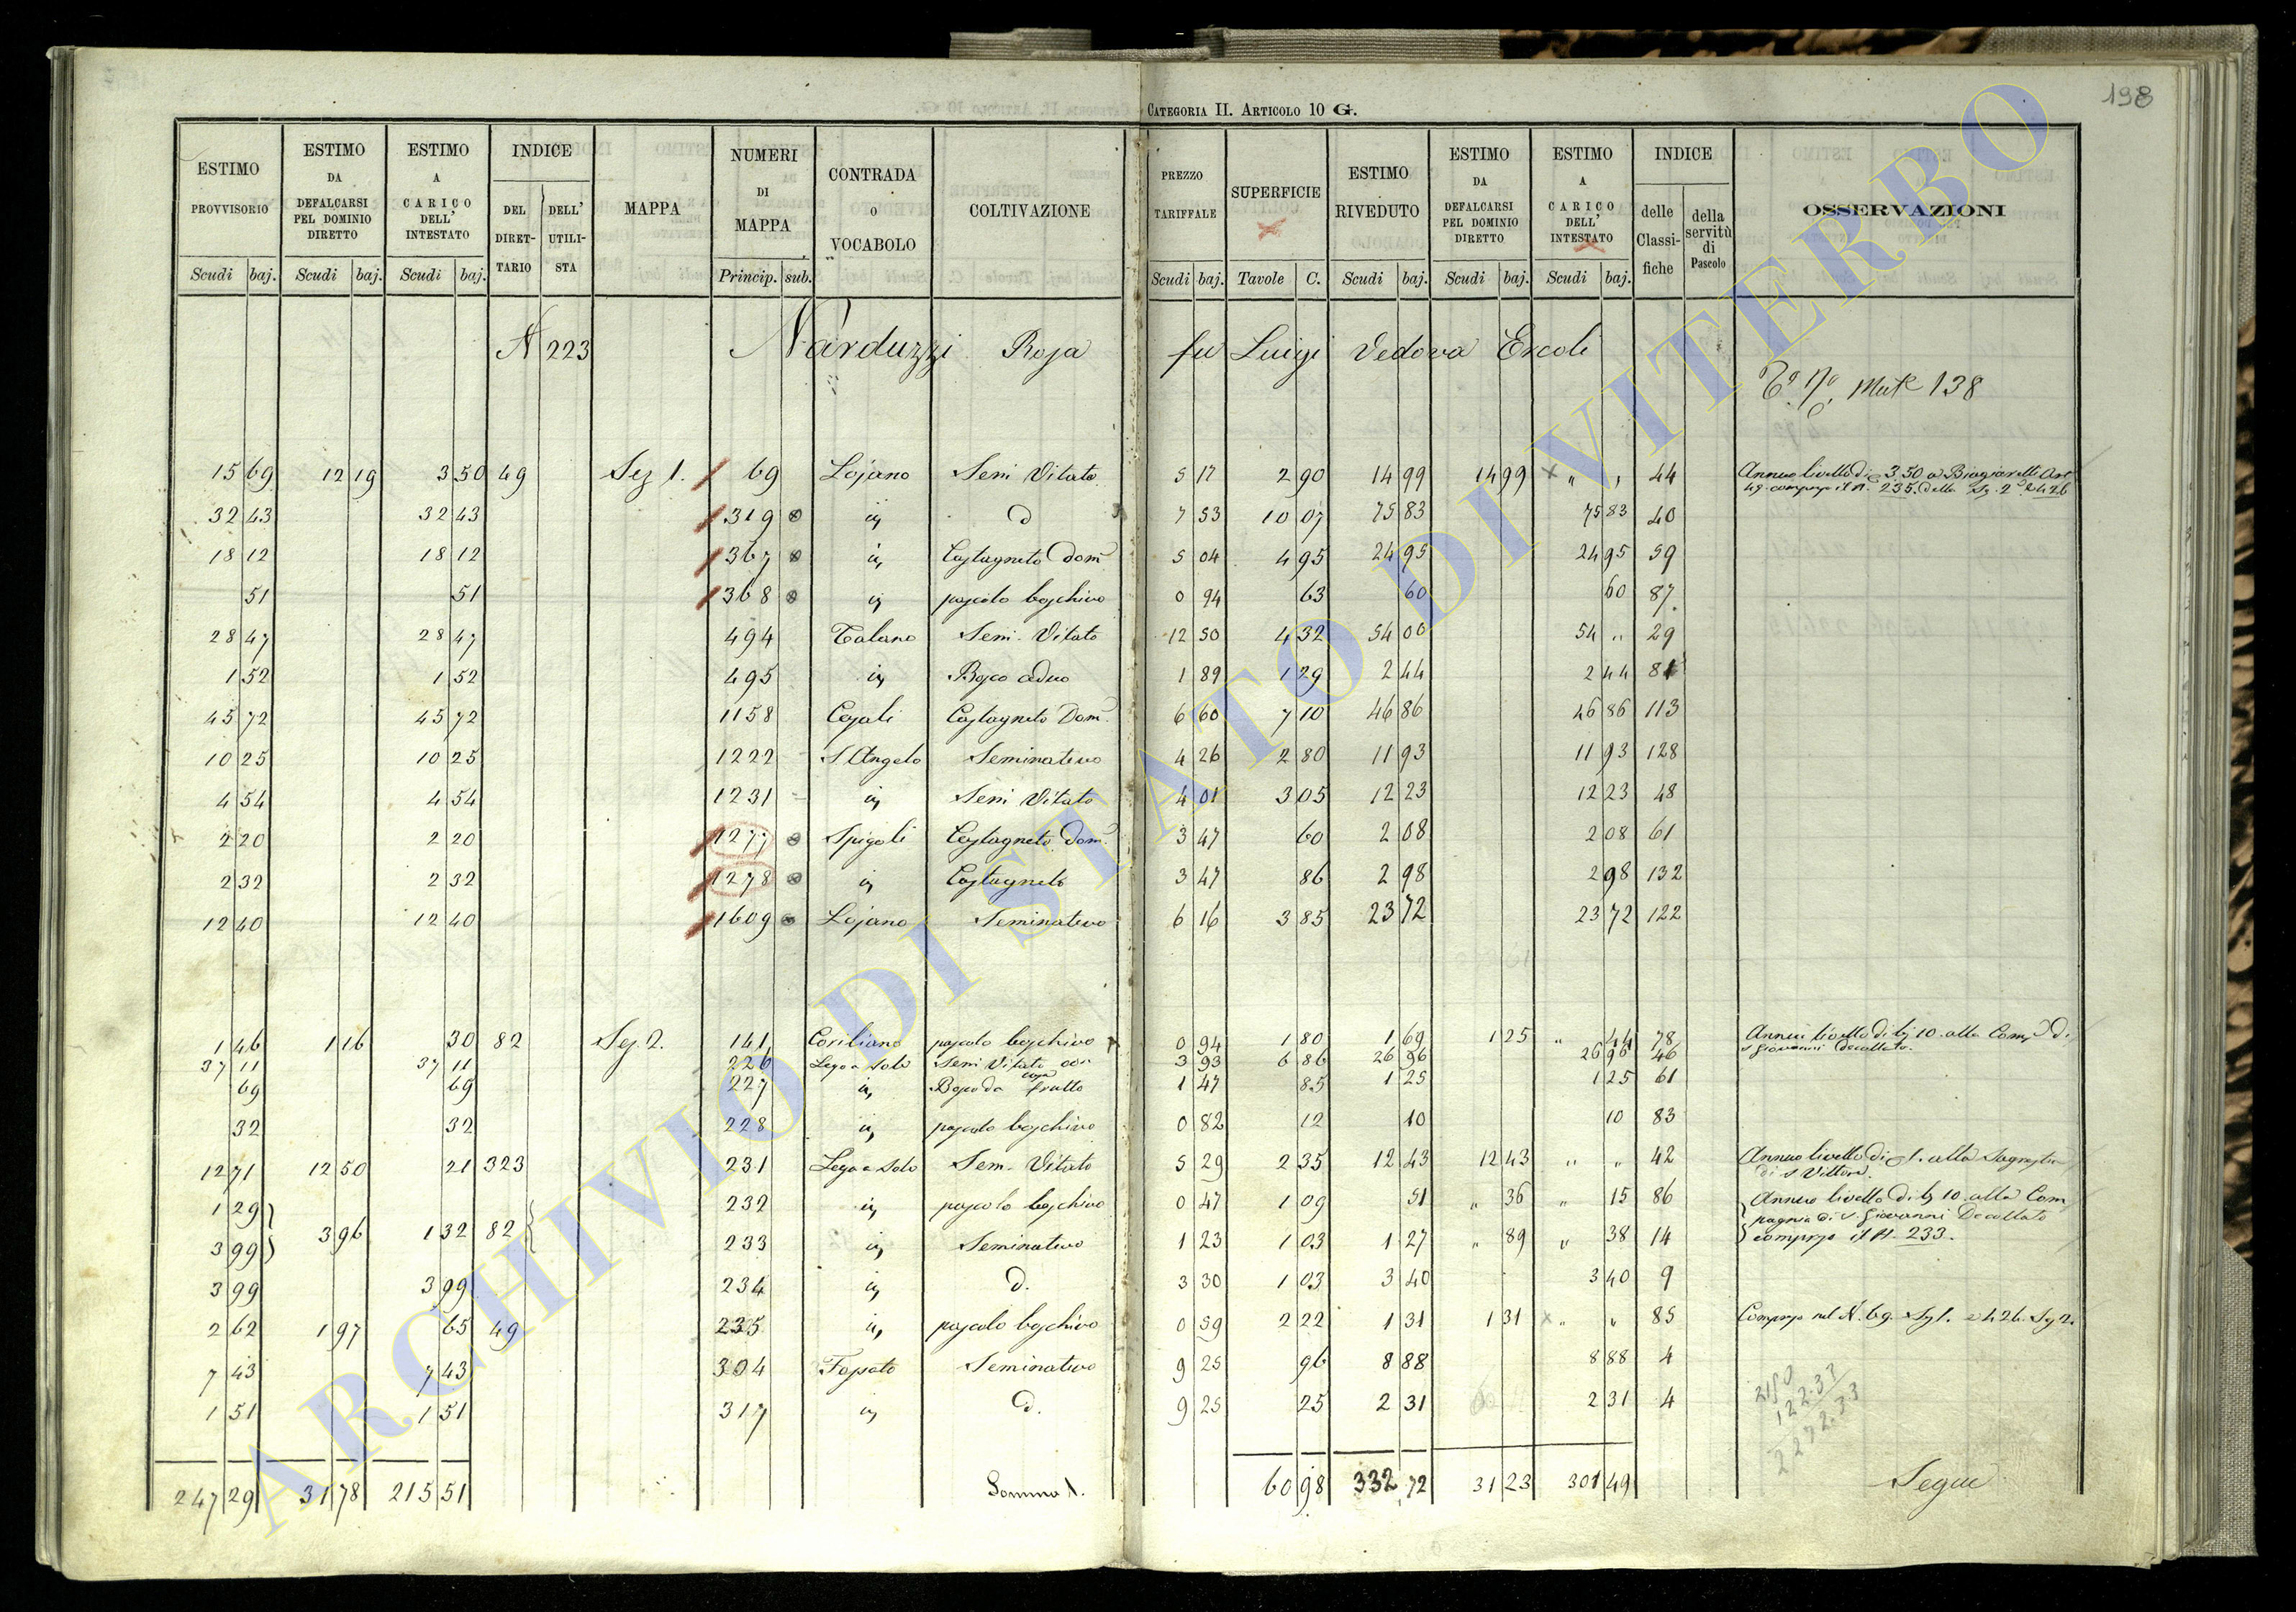 198
CATEGORIA II. ARTICOLO 10 G.
ESTIMO PROVVISORIO Scudi baj. | ESTIMO DA DEFALCARSI PEL DOMINIO DIRETTO Scudi baj. | ESTIMO A CARICO DELL' INTESTATO Scudi baj. | INDICE DEL DIRET-TARIO | DELL' UTILI-STA | MAPPA | NUMERI DI MAPPA Princip. sub. | CONTRADA O VOCABOLO | COLTIVAZIONE | PREZZO TARIFFALE Scudi baj. | SUPERFICIE Tavole C. | ESTIMO RIVEDUTO Scudi baj. | ESTIMO DA DEFALCARSI PEL DOMINIO DIRETTO Scudi baj. | ESTIMO A CARICO DELL' INTESTATO Scudi baj. | INDICE delle Classi-fiche | della servitù di Pascolo | OSSERVAZIONI
N 223 Narduzzi Rosa fu Luigi Vedova Ercoli
138
15 69 12 19 3 50 49 Sez 1. 69 Lojano Semi Vitato 5 17 2 90 14 99 14 99 " " 44 Annuo livello di 3.50 a Biagiarelli Art
49 compreso il N. 235. della Sez. 2ª e 426
32 43 32 43 319 in d 7 53 10 07 75 83 75 83 40
18 12 18 12 367 in Castagneto Dom 5 04 4 95 24 95 24 95 59
51 51 368 in pascolo boschivo 0 94 63 60 60 87
28 47 28 47 494 Talano Sem. Vitato 12 50 4 32 54 00 54 " 29
1 52 1 52 495 in Bosco ceduo 1 89 1 29 2 44 2 44 81
45 72 45 72 1158 Casali Castagneto Dom. 6 60 7 10 46 86 46 86 113
10 25 10 25 1222 S Angelo Seminativo 4 26 2 80 11 93 11 93 128
4 54 4 54 1231 in Semi Vitato 4 01 3 05 12 23 12 23 48
2 20 2 20 1277 Spigoli Castagneto Dom. 3 47 60 2 08 2 08 61
2 32 2 32 1278 in Castagneto 3 47 86 2 98 2 98 132
12 40 12 40 1609 Lojano Seminativo 6 16 3 85 23 72 23 72 122
1 46 1 16 30 82 Sez. 2. 141 Coriliano pascolo boschivo 0 94 1 80 1 69 1 25 " 44 78 Annuo livello di bj 10. alla Comp di
S Giovanni Decollato.
37 11 37 11 226 Lega a Solo Semi Vitato con 3 93 6 86 26 96 26 96 46
69 69 227 in Bosco da frutto 1 47 85 1 25 1 25 61
32 32 228 in pascolo boschivo 0 82 12 10 10 83
12 71 12 50 21 323 231 Lega a Solo Sem. Vitato 5 29 2 35 12 43 12 43 " " 42 Annuo livello di 1. alla Sagrestia
di S Vittore.
1 29 232 in pascolo boschivo 0 47 1 09 51 " 36 " 15 86 Annuo livello di bj 10. alla Com
3 96 1 32 82 pagnia di S. Giovanni Decollato
3 99 233 in Seminativo 1 23 1 03 1 27 " 89 " 38 14 compreso il N. 233.
3 99 3 99 234 in d. 3 30 1 03 3 40 3 40 9
2 62 1 97 65 49 235 in pascolo boschivo 0 59 2 22 1 31 1 31 " " 85 Compreso nel N. 69. Sez 1. e 426. Sez 2.
7 43 7 43 304 Fossato Seminativo 9 25 96 8 88 8 88 4
1 51 1 51 317 in d. 9 25 25 2 31 2 31 4
2150
122.33
2272.33
247 29 31 78 215 51 Somma 1. 60 98 332 72 31 23 301 49 Segue
ARCHIVIO DI STATO DI VITERBO